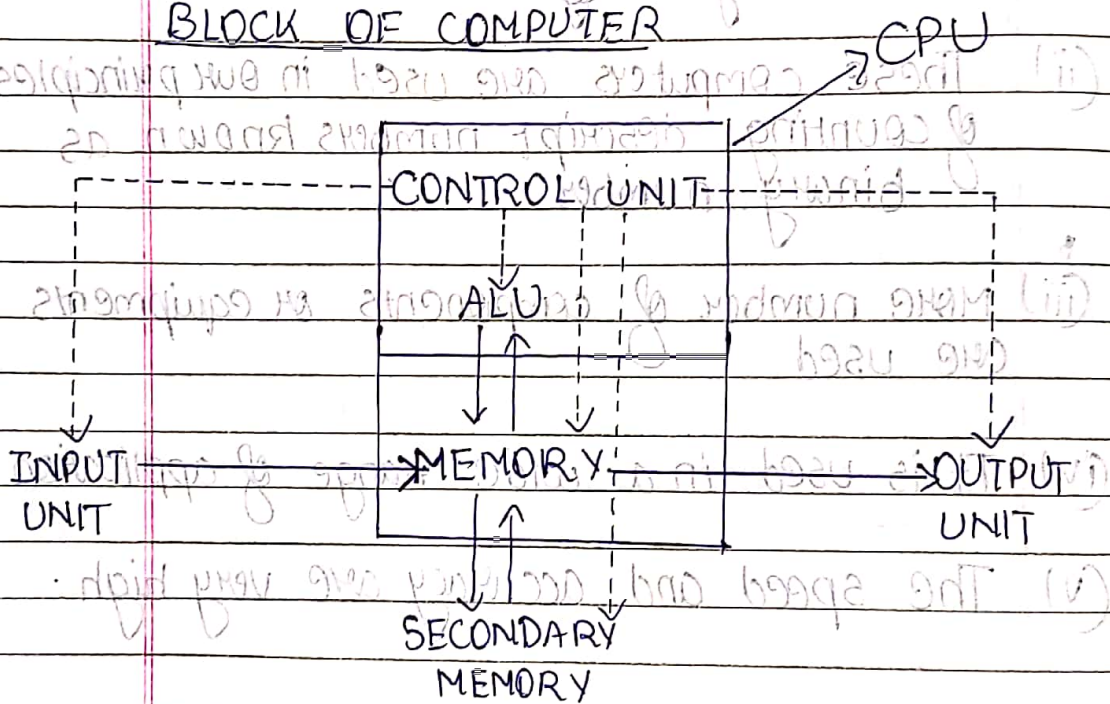 BLOCK OF COMPUTER
CPU
CONTROL UNIT
ALU
INPUT
UNIT
MEMORY
OUTPUT
UNIT
SECONDARY
MEMORY